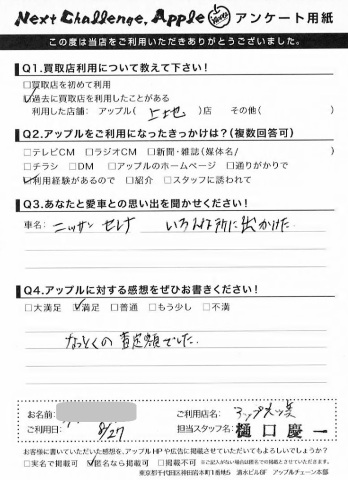 Next Challenge, Apple アンケート用紙
この度は当店をご利用いただきありがとうございました。
Q1.買取店利用について教えて下さい!
□買取店を初めて利用
☑過去に買取店を利用したことがある
利用した店舗: アップル( 上地 )店 その他( )
Q2.アップルをご利用になったきっかけは?(複数回答可)
□テレビCM □ラジオCM □新聞・雑誌(媒体名/ )
□チラシ □DM □アップルのホームページ □通りがかりで
☑利用経験があるので □紹介 □スタッフに誘われて
Q3.あなたと愛車との思い出を聞かせください!
車名: ニッサン セレナ いろんな所に出かけた.
Q4.アップルに対する感想をぜひお書きください!
□大満足 ☑満足 □普通 □もう少し □不満
なっとくの査定額でした.
お名前:
ご利用店名:
ご利用日: 8/27
担当スタッフ名: 樋口慶一
お客様に書いていただいた感想を、アップルHPや広告に掲載させていただいてもよろしいでしょうか?
□実名で掲載可 ☑匿名なら掲載可 □掲載不可 ※ご記入がない場合は匿名での掲載とさせていただきます。
東京都千代田区神田錦本町1番地5 清水ビル6F アップルチェーン本部